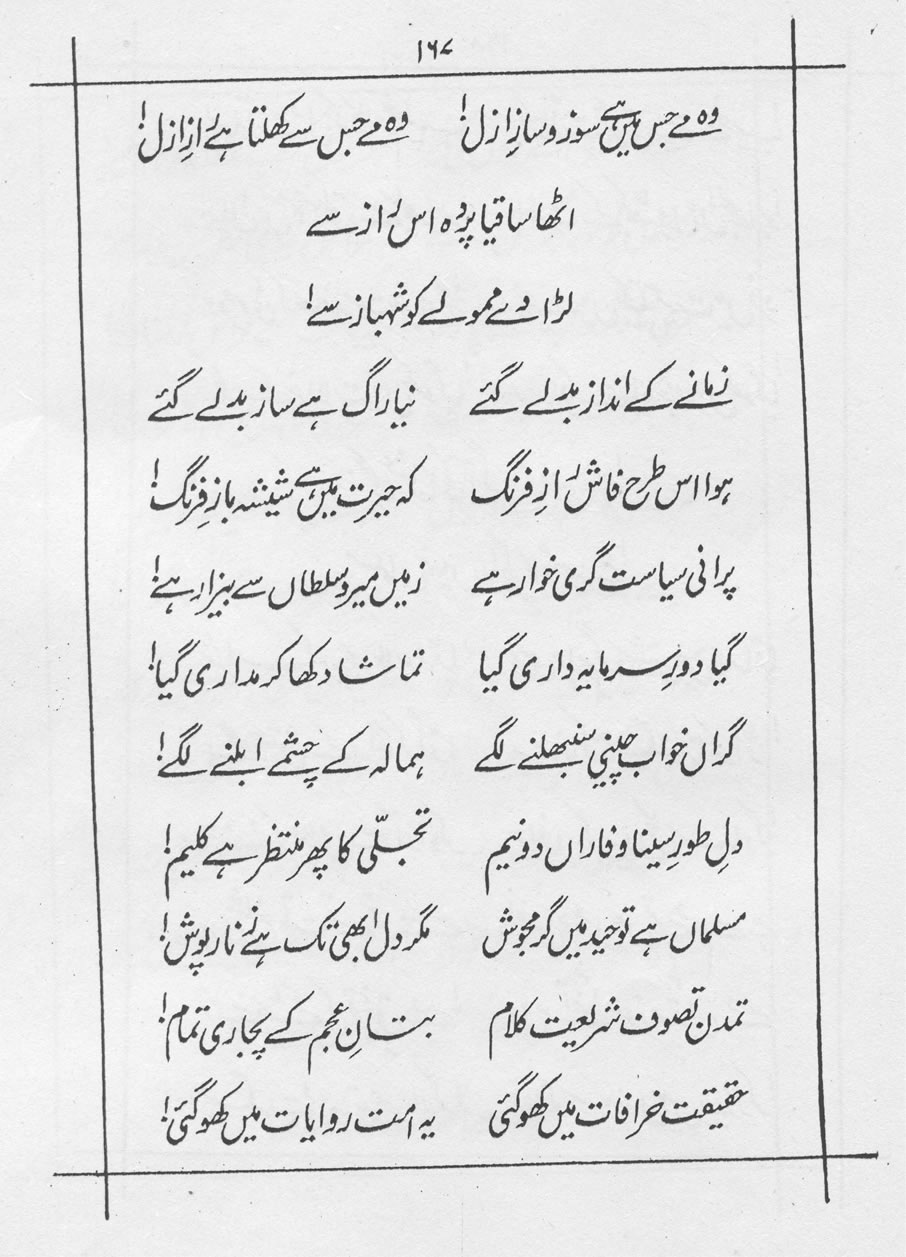 ۱۶۷
وہ مے جس میں ہے سوز و سازِ ازل! وہ مے جس سے کھلتا ہے رازِ ازل!
اٹھا ساقیا پردہ اس راز سے
لڑا دے ممولے کو شہباز سے!
زمانے کے انداز بدلے گئے نیا راگ ہے ساز بدلے گئے
ہوا اس طرح فاش رازِ فرنگ کہ حیرت میں ہے شیشہ بازِ فرنگ!
پرانی سیاست گری خوار ہے زمیں میر و سلطاں سے بیزار ہے!
گیا دورِ سرمایہ داری گیا تماشا دکھا کر مداری گیا!
گراں خواب چینی سنبھلنے لگے ہمالہ کے چشمے ابلنے لگے!
دلِ طورِ سینا و فاراں دو نیم تجلّی کا پھر منتظر ہے کلیم!
مسلماں ہے توحید میں گرمجوش مگر دل ابھی تک ہے زنّار پوش!
تمدن تصوف شریعت کلام بتانِ عجم کے پجاری تمام!
حقیقت خرافات میں کھو گئی یہ امت روایات میں کھو گئی!